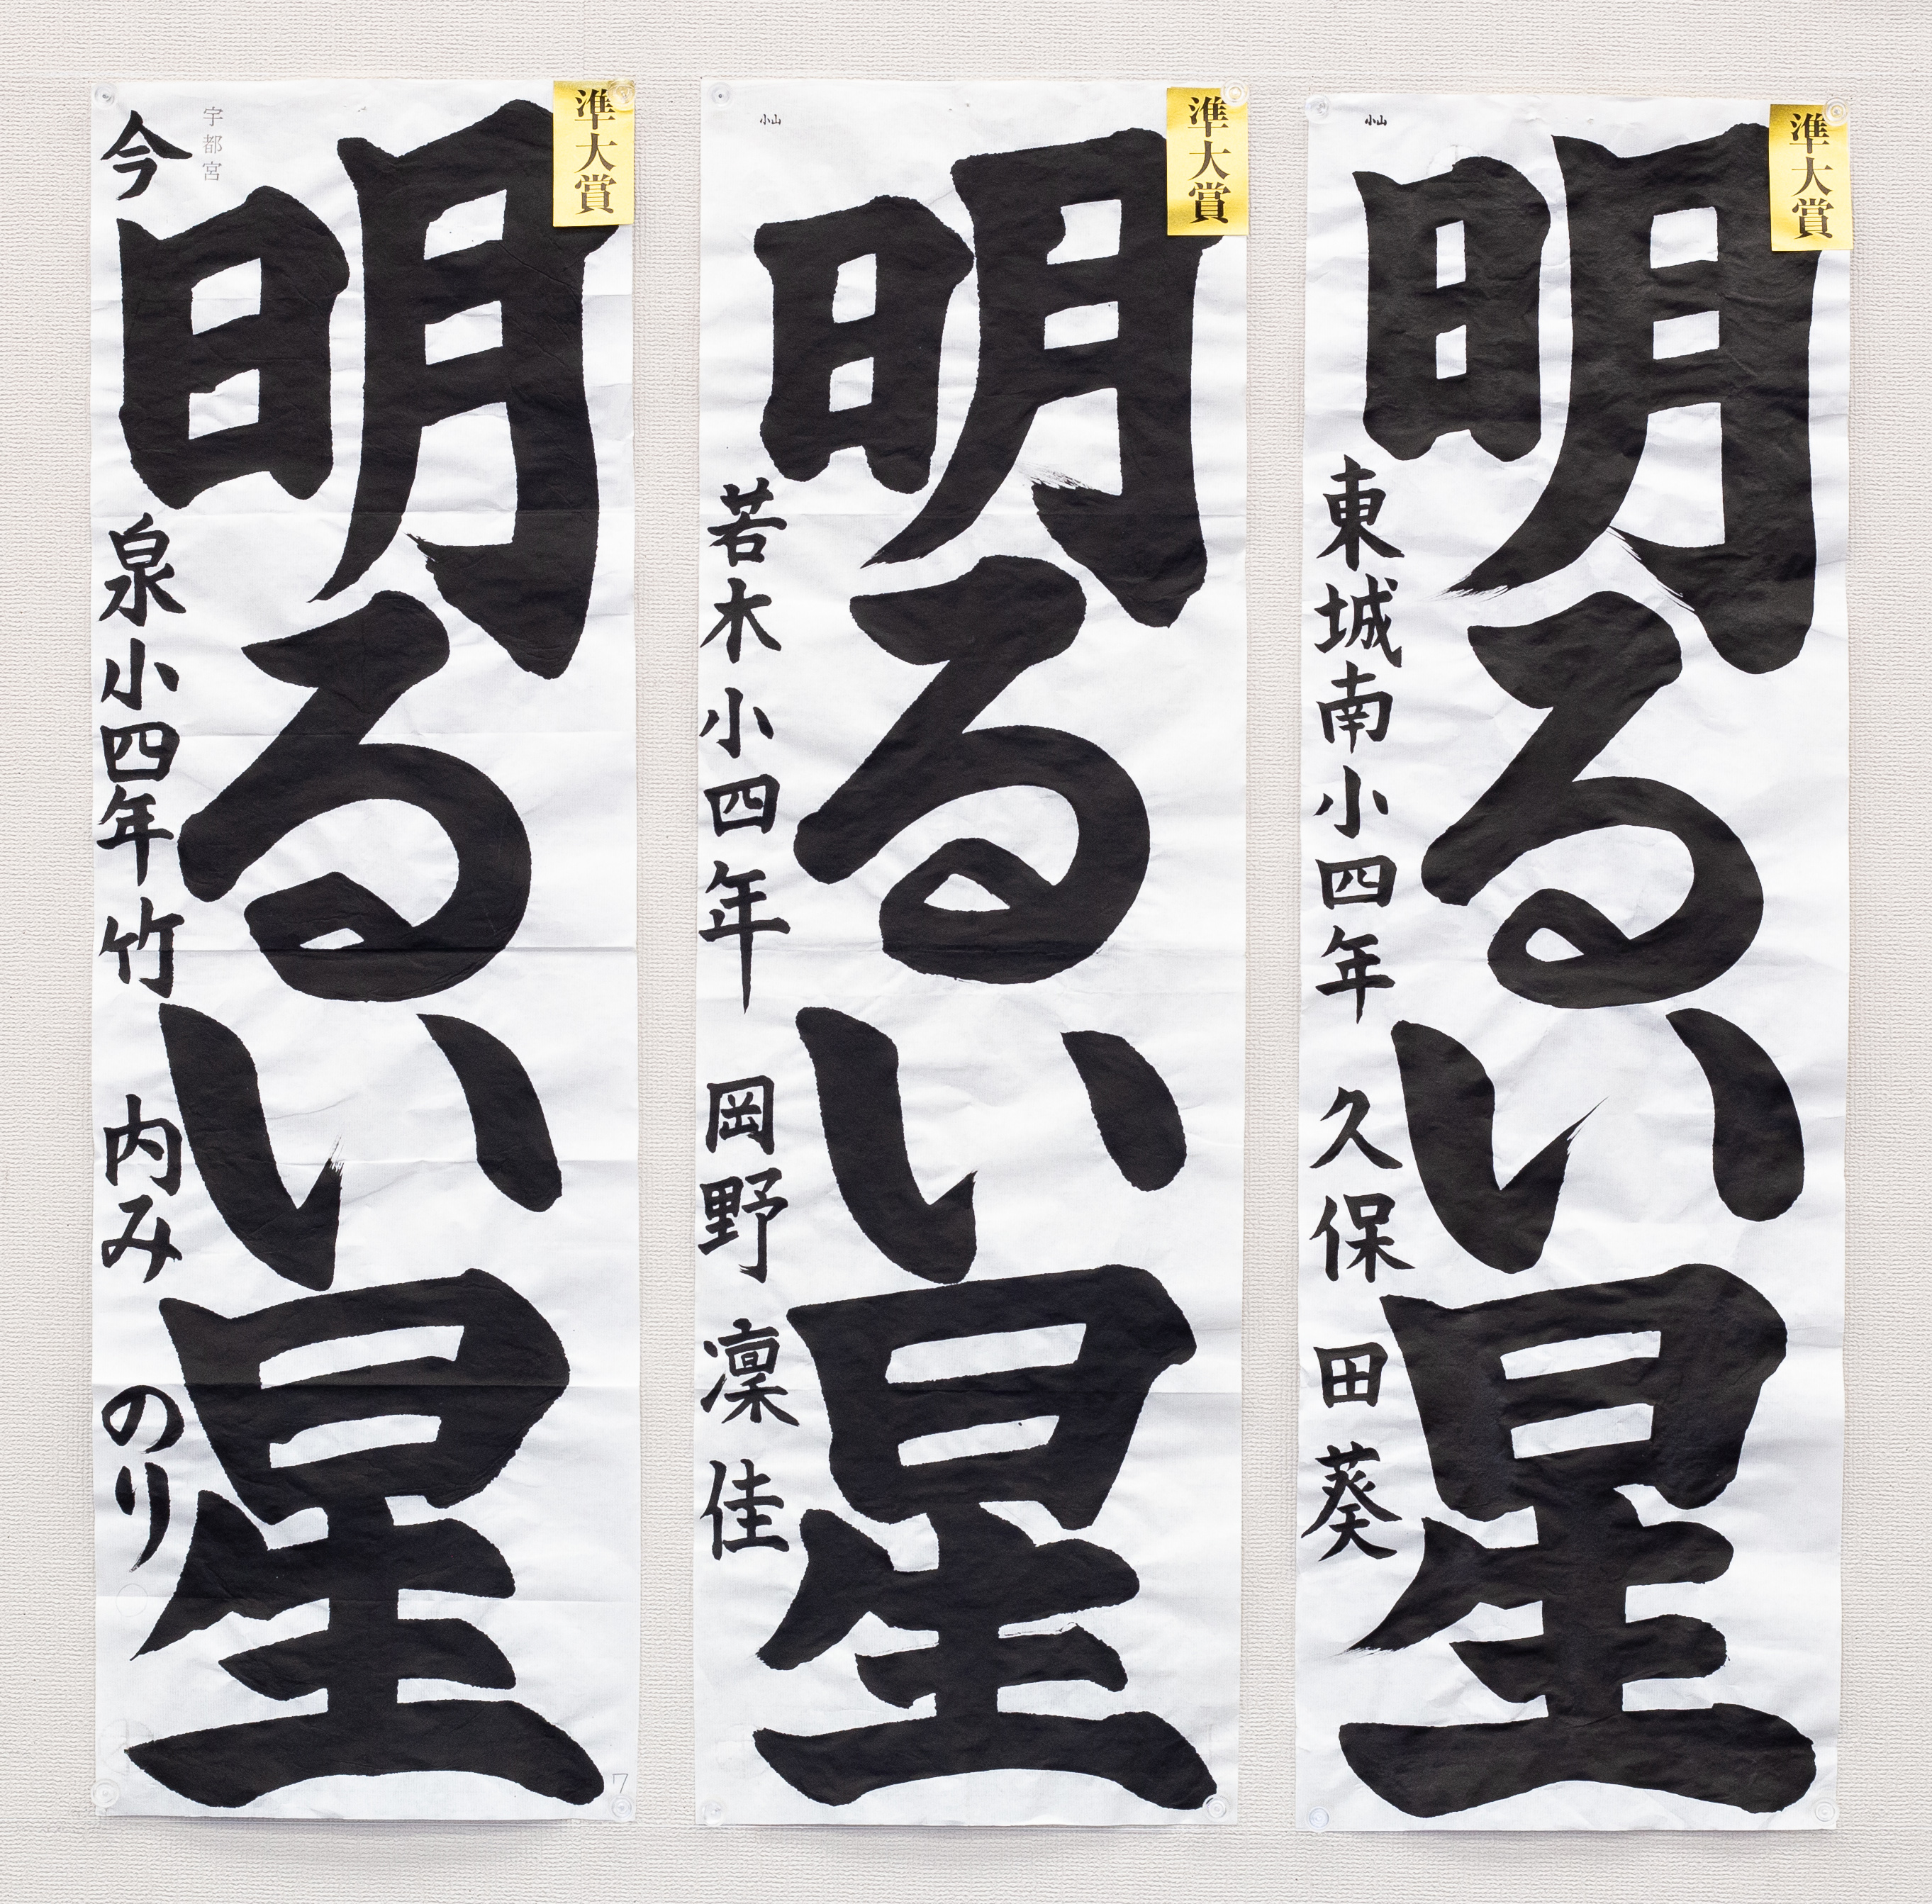 準大賞
明るい星
宇都宮
今泉小四年竹内みのり
7
準大賞
明るい星
小山
若木小四年 岡野凜佳
準大賞
明るい星
小山
東城南小四年 久保田葵